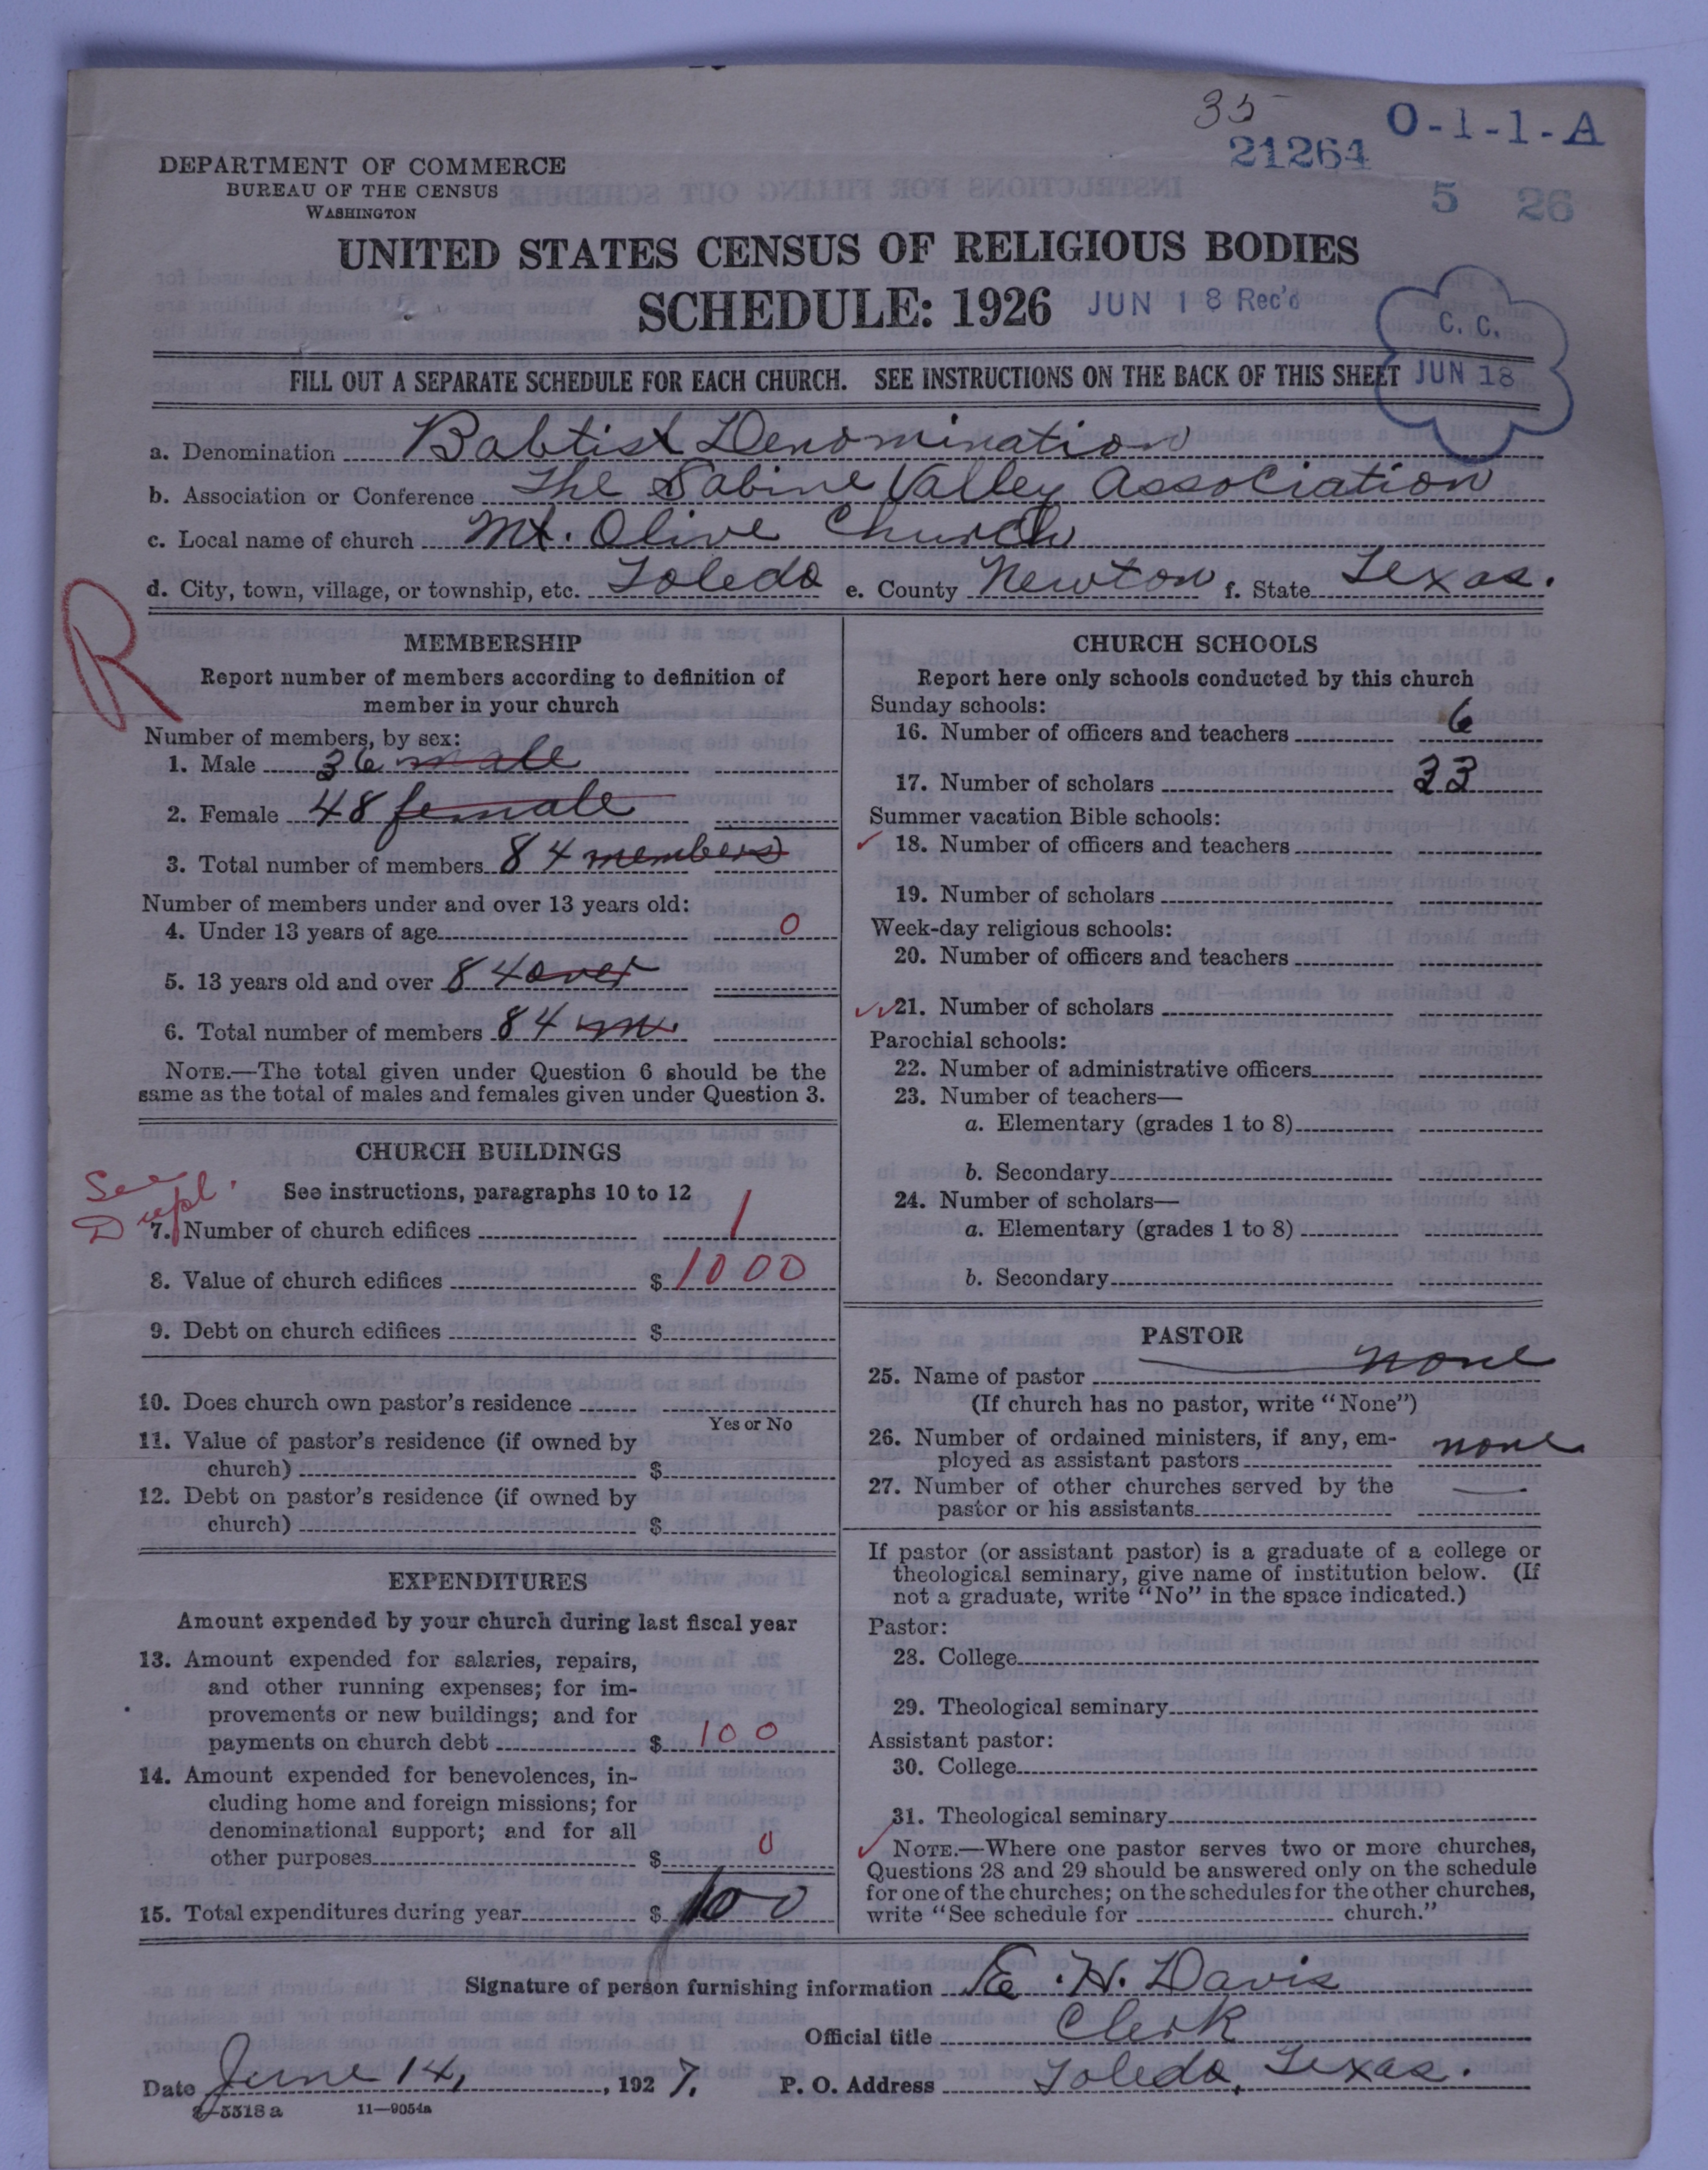 35
O-1-1-A
21264
5 26
DEPARTMENT OF COMMERCE
BUREAU OF THE CENSUS
WASHINGTON
UNITED STATES CENSUS OF RELIGIOUS BODIES
SCHEDULE: 1926 JUN 18 Rec'd
C. C.
JUN 18
FILL OUT A SEPARATE SCHEDULE FOR EACH CHURCH. SEE INSTRUCTIONS ON THE BACK OF THIS SHEET
a. Denomination Babtist Denomination
b. Association or Conference The Sabine Valley Association
c. Local name of church Mt. Olive Church
d. City, town, village, or township, etc. Toledo e. County Newton f. State Texas.
R
MEMBERSHIP
Report number of members according to definition of
member in your church
Number of members, by sex:
1. Male 36 male
2. Female 48 female
3. Total number of members 84 members
Number of members under and over 13 years old:
4. Under 13 years of age 0
5. 13 years old and over 84 over
6. Total number of members 84 m
NOTE.—The total given under Question 6 should be the
same as the total of males and females given under Question 3.
CHURCH BUILDINGS
See instructions, paragraphs 10 to 12
See
Dupl.
7. Number of church edifices 1
8. Value of church edifices $ 1000
9. Debt on church edifices $
10. Does church own pastor's residence
Yes or No
11. Value of pastor's residence (if owned by
church) $
12. Debt on pastor's residence (if owned by
church) $
EXPENDITURES
Amount expended by your church during last fiscal year
13. Amount expended for salaries, repairs,
and other running expenses; for im-
provements or new buildings; and for
payments on church debt $ 100
14. Amount expended for benevolences, in-
cluding home and foreign missions; for
denominational support; and for all
other purposes $ 0
15. Total expenditures during year $ 100
CHURCH SCHOOLS
Report here only schools conducted by this church
Sunday schools:
16. Number of officers and teachers 6
17. Number of scholars 33
Summer vacation Bible schools:
18. Number of officers and teachers
19. Number of scholars
Week-day religious schools:
20. Number of officers and teachers
21. Number of scholars
Parochial schools:
22. Number of administrative officers
23. Number of teachers—
a. Elementary (grades 1 to 8)
b. Secondary
24. Number of scholars—
a. Elementary (grades 1 to 8)
b. Secondary
PASTOR
25. Name of pastor none
(If church has no pastor, write "None")
26. Number of ordained ministers, if any, em-
ployed as assistant pastors none
27. Number of other churches served by the
pastor or his assistants
If pastor (or assistant pastor) is a graduate of a college or
theological seminary, give name of institution below. (If
not a graduate, write "No" in the space indicated.)
Pastor:
28. College
29. Theological seminary
Assistant pastor:
30. College
31. Theological seminary
NOTE.—Where one pastor serves two or more churches,
Questions 28 and 29 should be answered only on the schedule
for one of the churches; on the schedules for the other churches,
write "See schedule for church."
Signature of person furnishing information E. H. Davis
Official title Clerk
Date June 14, 1927. P. O. Address Toledo, Texas.
8—5518a 11—9054a